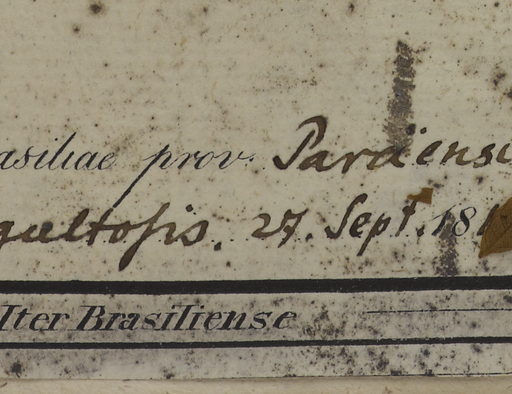 asiliae prov. Paraensi
gultosis. 27. Sept. 181
Iter Brasiliense